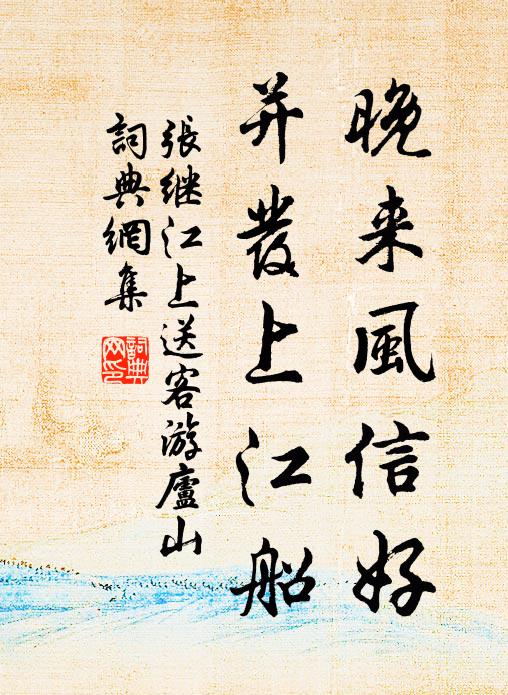 晚来風信好
并發上江船
張继江上送客游廬山
詞典網集
詞典网印